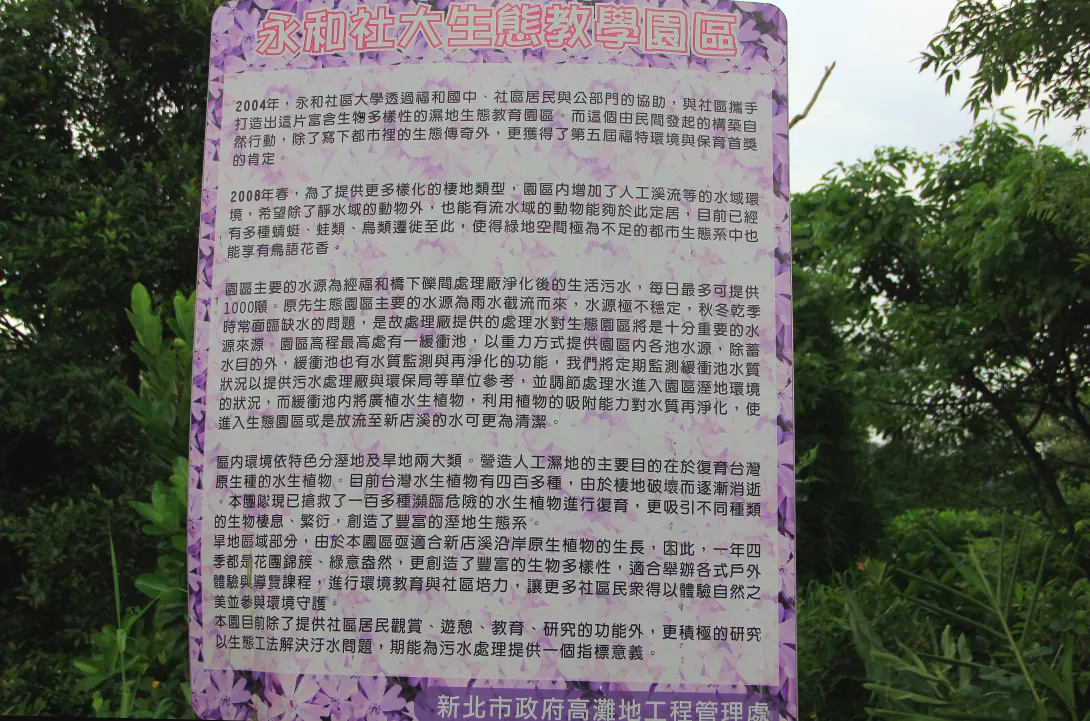 永和社大生態教學園區
2004年，永和社區大學透過福和國中、社區居民與公部門的協助，與社區攜手
打造出這片富含生物多樣性的濕地生態教育園區。而這個由民間發起的構築自
然行動，除了寫下都市裡的生態傳奇外，更獲得了第五屆福特環境與保育首獎
的肯定。
2008年春，為了提供更多樣化的棲地類型，園區內增加了人工溪流等的水域環
境，希望除了靜水域的動物外，也能有流水域的動物能夠於此定居，目前已經
有多種蜻蜓、蛙類、鳥類遷徙至此，使得綠地空間極為不足的都市生態系中也
能享有鳥語花香。
園區主要的水源為經福和橋下礫間處理廠淨化後的生活污水，每日最多可提供
1000噸。原先生態園區主要的水源為雨水截流而來，水源極不穩定，秋冬乾季
時常面臨缺水的問題，是故處理廠提供的處理水對生態園區將是十分重要的水
源來源。園區高程最高處有一緩衝池，以重力方式提供園區內各池水源，除蓄
水目的外，緩衝池也有水質監測與再淨化的功能，我們將定期監測緩衝池水質
狀況以提供污水處理廠與環保局等單位參考，並調節處理水進入園區溼地環境
的狀況，而緩衝池內將廣植水生植物，利用植物的吸附能力對水質再淨化，使
進入生態園區或是放流至新店溪的水可更為清潔。
區內環境依特色分溼地及旱地兩大類。營造人工濕地的主要目的在於復育台灣
原生種的水生植物。目前台灣水生植物有四百多種，由於棲地破壞而逐漸消逝
。本團隊現已搶救了一百多種瀕臨危險的水生植物進行復育，更吸引不同種類
的生物棲息、繁衍，創造了豐富的溼地生態系。
旱地區域部分，由於本園區亟適合新店溪沿岸原生植物的生長，因此，一年四
季都是花團錦簇、綠意盎然，更創造了豐富的生物多樣性，適合舉辦各式戶外
體驗與導覽課程，進行環境教育與社區培力，讓更多社區民眾得以體驗自然之
美並參與環境守護。
本園目前除了提供社區居民觀賞、遊憩、教育、研究的功能外，更積極的研究
以生態工法解決汙水問題，期能為污水處理提供一個指標意義。
新北市政府高灘地工程管理處